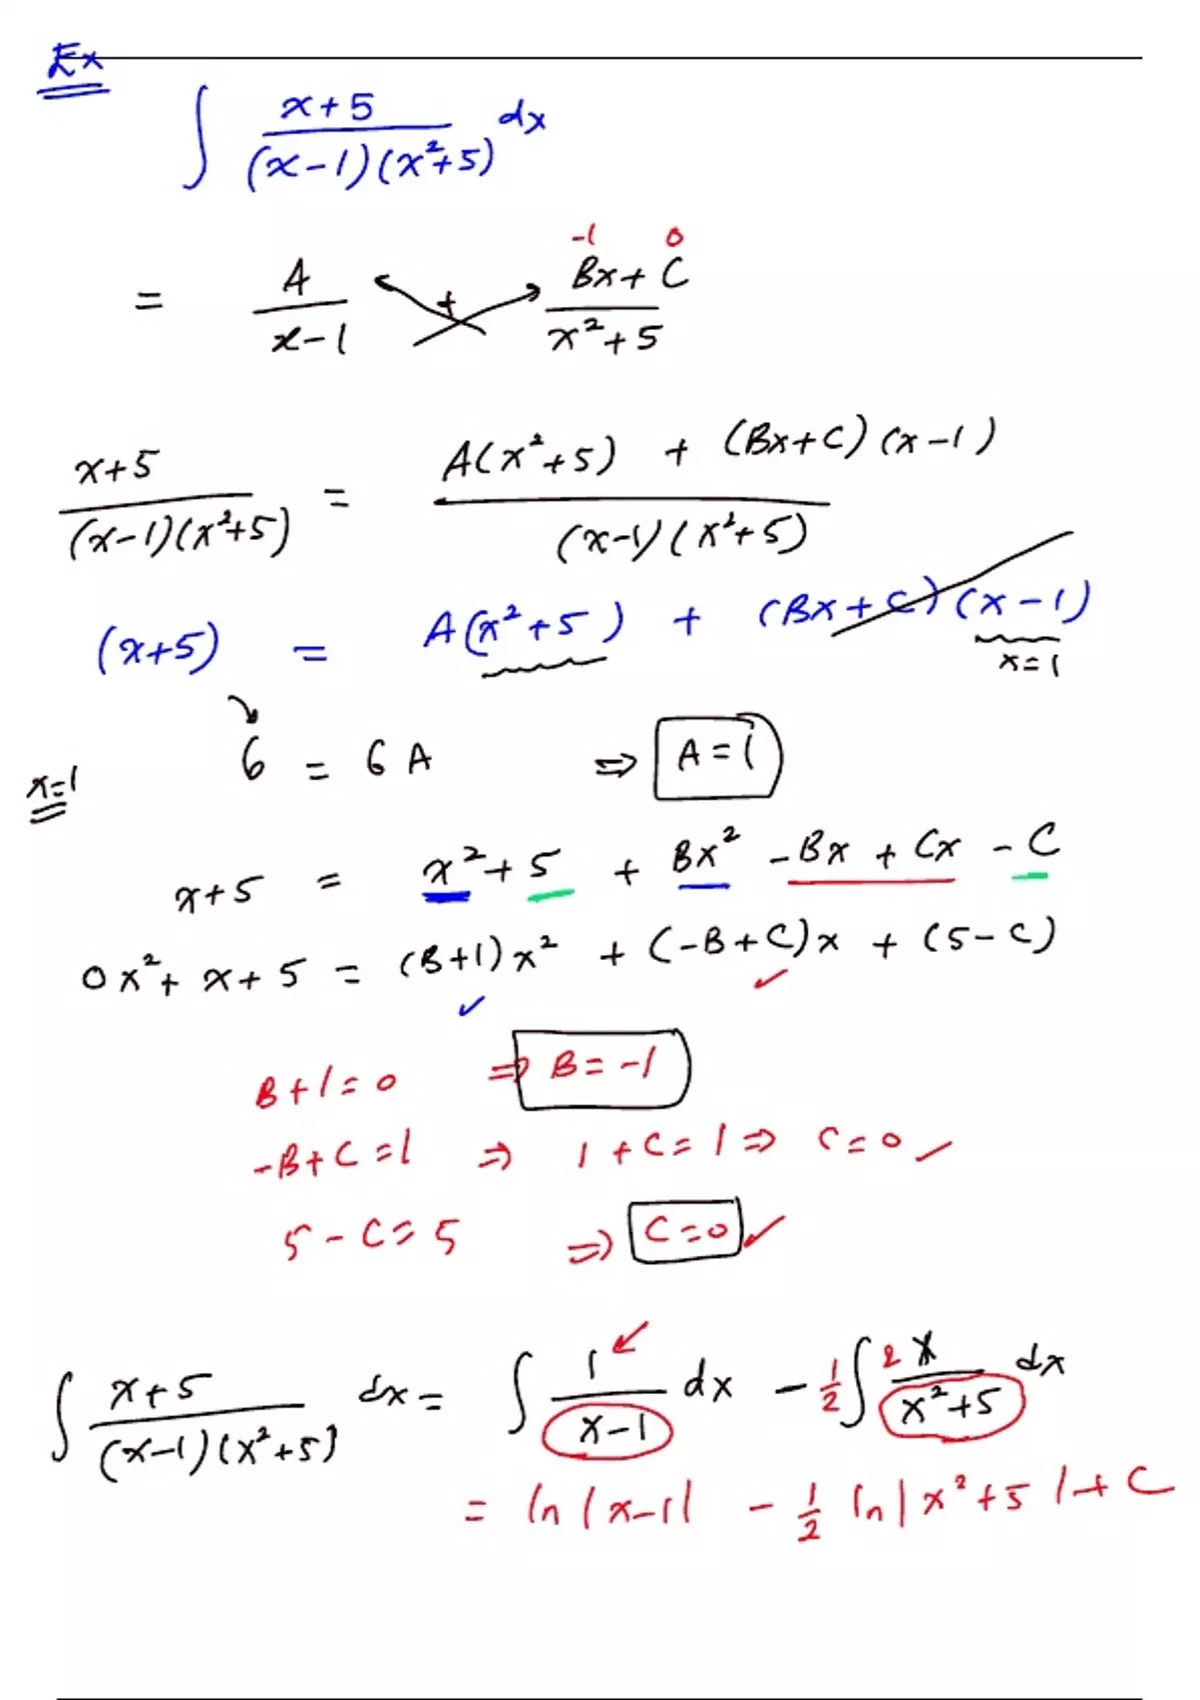 Ex
∫ x+5 / (x-1)(x²+5) dx
-1 0
= A / x-1 + Bx+C / x²+5
x+5 / (x-1)(x²+5) = A(x²+5) + (Bx+C)(x-1) / (x-1)(x²+5)
(x+5) = A(x²+5) + (Bx+C)(x-1)
x=1
x=1 6 = 6A ⇒ A=1
x+5 = x²+5 + Bx² -Bx + Cx - C
0x²+ x+5 = (B+1)x² + (-B+C)x + (5-C)
B+1=0 ⇒ B=-1
-B+C=1 ⇒ 1+C=1 ⇒ C=0
5-C=5 ⇒ C=0
∫ x+5 / (x-1)(x²+5) dx = ∫ 1 / x-1 dx - 1/2 ∫ 2x / x²+5 dx
= ln|x-1| - 1/2 ln|x²+5|+C